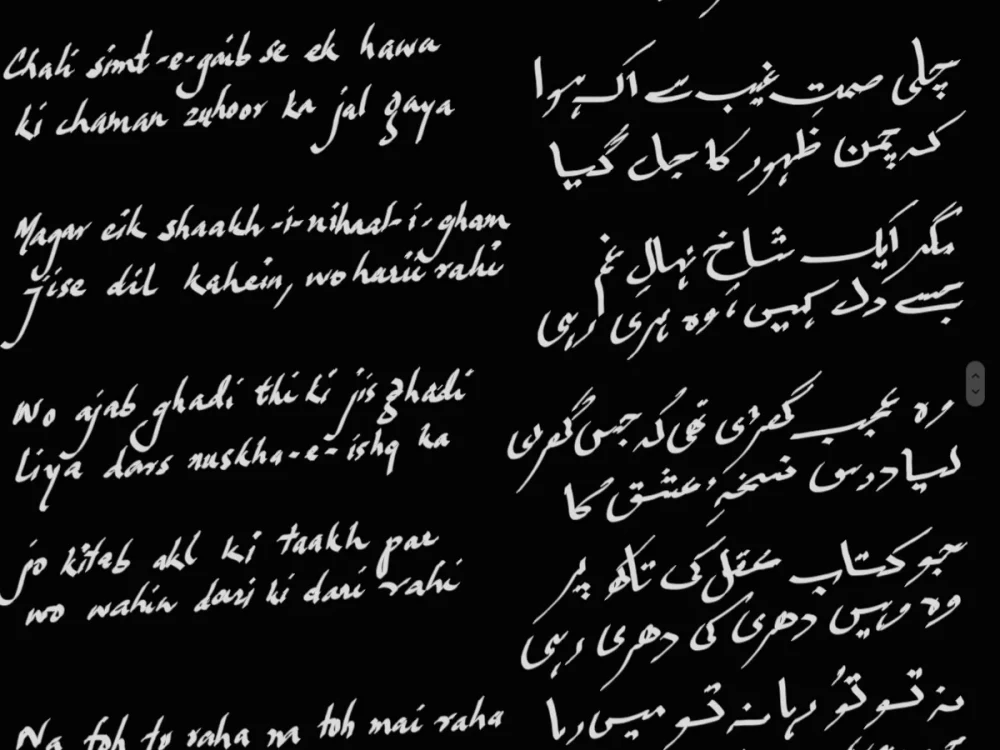 Chali simt-e-gaib se ek hawa
ki chaman zuhoor ka jal gaya
Magar eik shaakh-i-nihaal-i-gham
jise dil kahein, wo harii rahi
Wo ajab ghadi thi ki jis ghadi
liya dars nuskha-e-ishq ka
jo kitab akl ki taakh par
wo wahin dari ki dari rahi
Na toh tu raha na toh mai raha
چلی صمتِ غیب سے اک ہوا
کہ چمن ظہور کا جل گیا
مگر ایک شاخِ نہالِ غم
جسے دل کہیں، وہ ہری رہی
وہ عجب گھڑی تھی کہ جس گھڑی
لیا درس نسخہٴ عشق کا
جو کتاب عقل کی تاکھ پر
وہ وہیں دھری کی دھری رہی
نہ تو تُو رہا نہ تو میں رہا